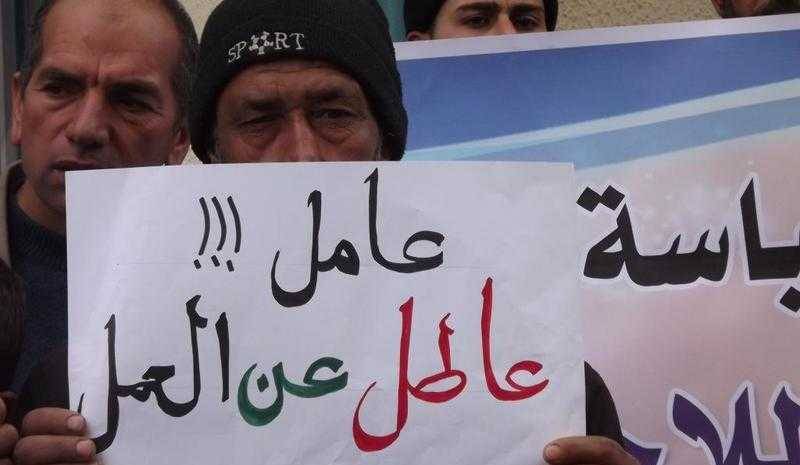 SPORT
عامل !!!
عاطل عن العمل